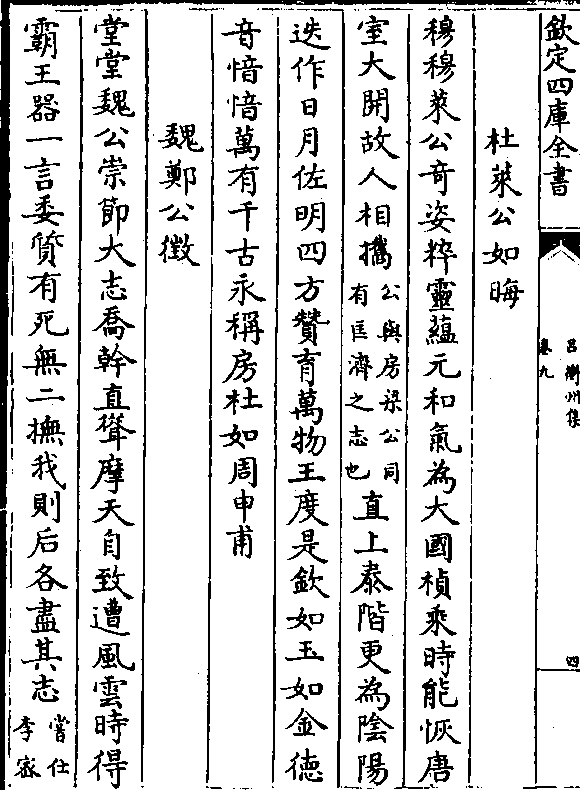 欽定四庫全書
呂衡州集
卷九
四
杜萊公如晦
穆穆萊公奇姿粹靈蘊元和氣為大國楨乘時能恢唐
室大開故人相攜公與房梁公同有匡濟之志也直上泰階更為陰陽
迭作日月佐明四方贊育萬物王度是欽如玉如金德
音愔愔萬有千古永稱房杜如周申甫
魏鄭公徵
堂堂魏公崇節大志喬幹直聳摩天自致遭風雲時得
霸王器一言委質有死無二撫我則后各盡其志嘗仕李密